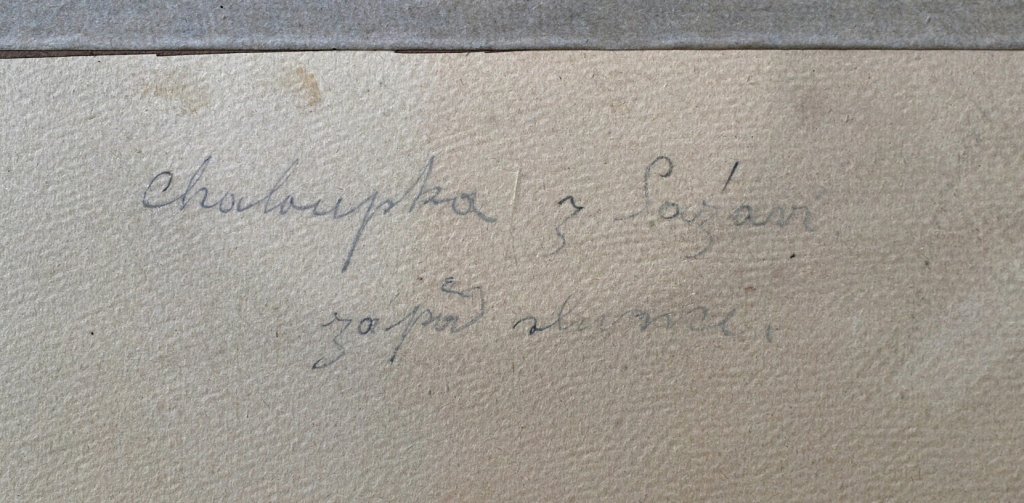 chaloupka z Sázavi
západ slunce.